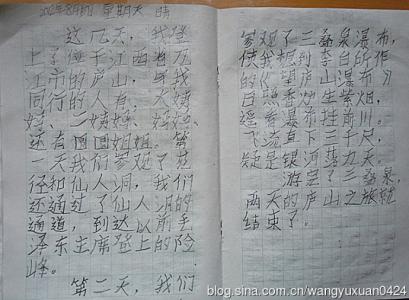 星期天 晴
这几天，我登
上了位于江西省九
江市的庐山，与我
同行的人有：大姨
妈、二姨妈、妈妈、
还有圆圆姐姐。第
一天我们参观了花
径和仙人洞，我们
还通过了仙人洞的
通道，到达以前毛
泽东主席登上的险
峰。
第二天，我们
参观了三叠泉瀑布，
使我想到李白所作
的《望庐山瀑布》
日照香炉生紫烟，
遥看瀑布挂前川。
飞流直下三千尺，
疑是银河落九天。
游完了三叠泉，
两天的庐山之旅就
结束了。
blog.sina.com.cn/wangyuxuan0424